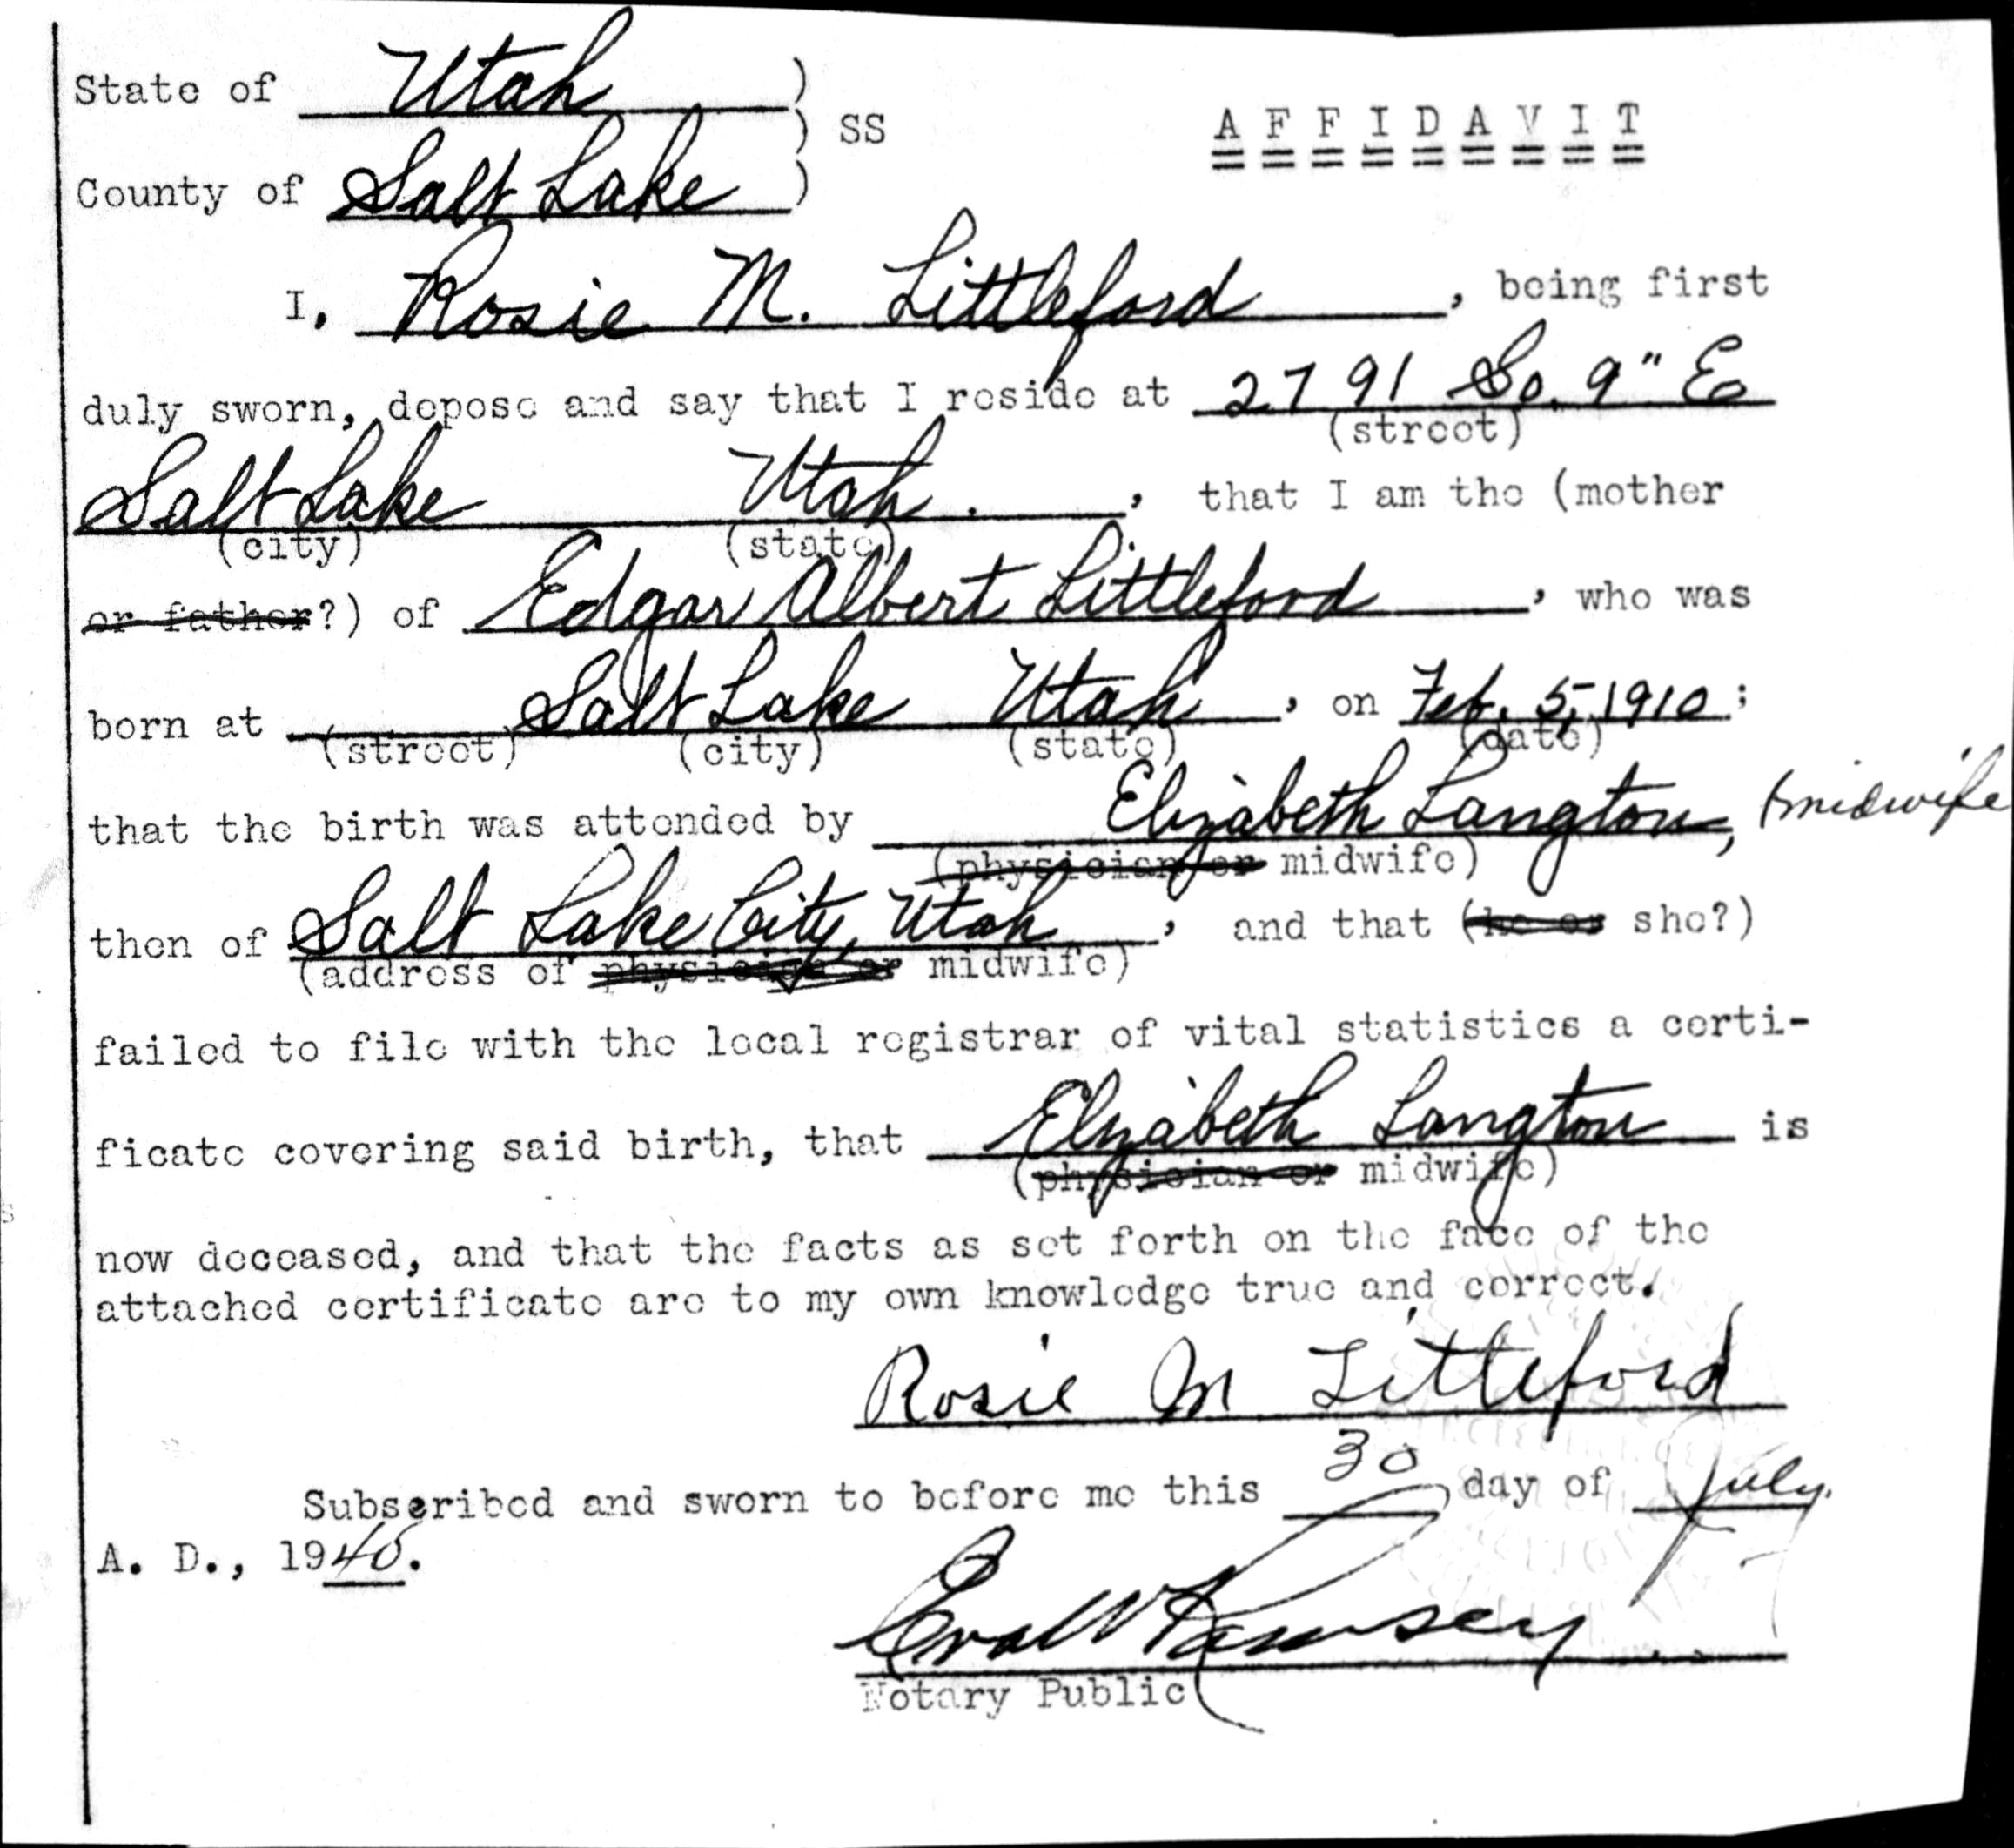 State of Utah )
) SS
A F F I D A V I T
County of Salt Lake )
I, Rosie M. Littleford, being first
duly sworn, depose and say that I reside at 2791 So. 9" E
(street)
Salt Lake Utah. , that I am the (mother
(city) (state)
or father?) of Edgar Albert Littleford, who was
born at Salt Lake Utah, on Feb. 5, 1910;
(street) (city) (state) (date)
that the birth was attended by Elizabeth Langton, (midwife
(physician or midwife)
then of Salt Lake City, Utah, and that (he or she?)
(address of physician or midwife)
failed to file with the local registrar of vital statistics a certi-
ficate covering said birth, that Elizabeth Langton is
(physician or midwife)
now deceased, and that the facts as set forth on the face of the
attached certificate are to my own knowledge true and correct.
Rosie M Littleford
Subscribed and sworn to before me this 30 day of July.
A. D., 1940.
Ramsey
Notary Public